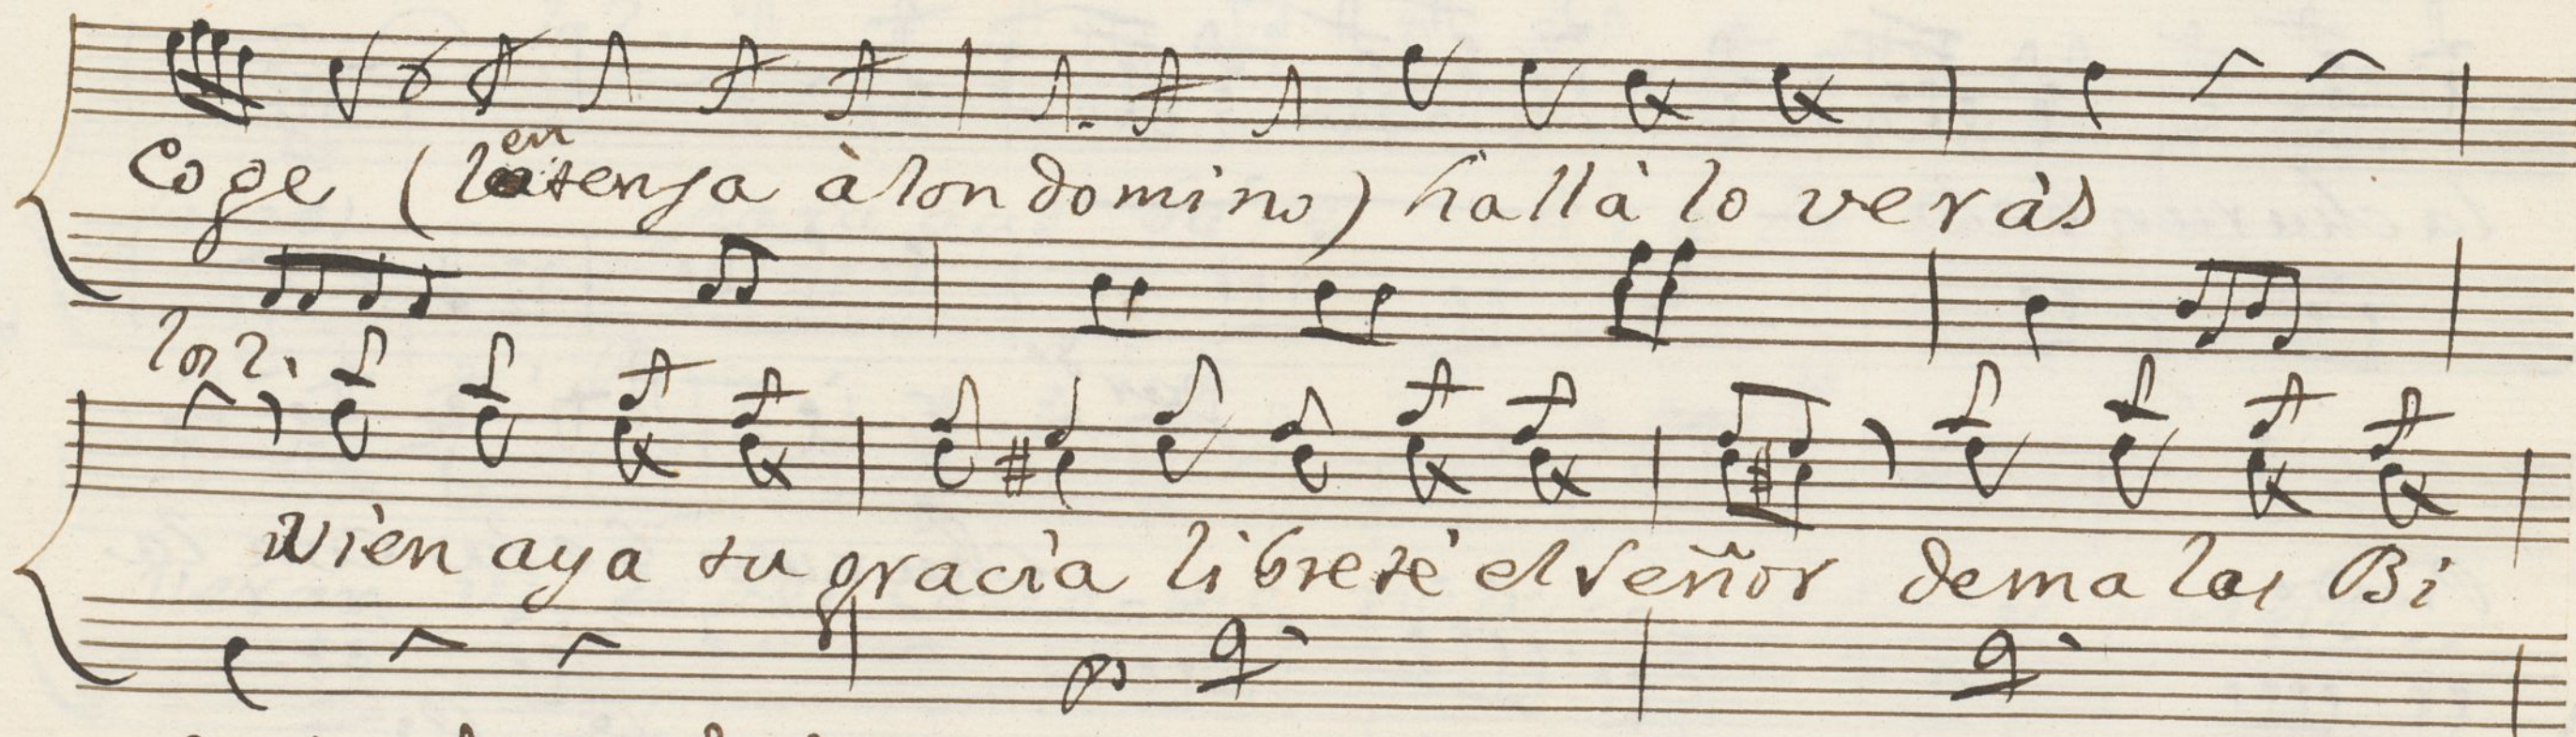 Coge (la tenga à lon domino) hallà lo veràs
en
los 2.
Vien aya tu gracia librete el señor demalas Bi